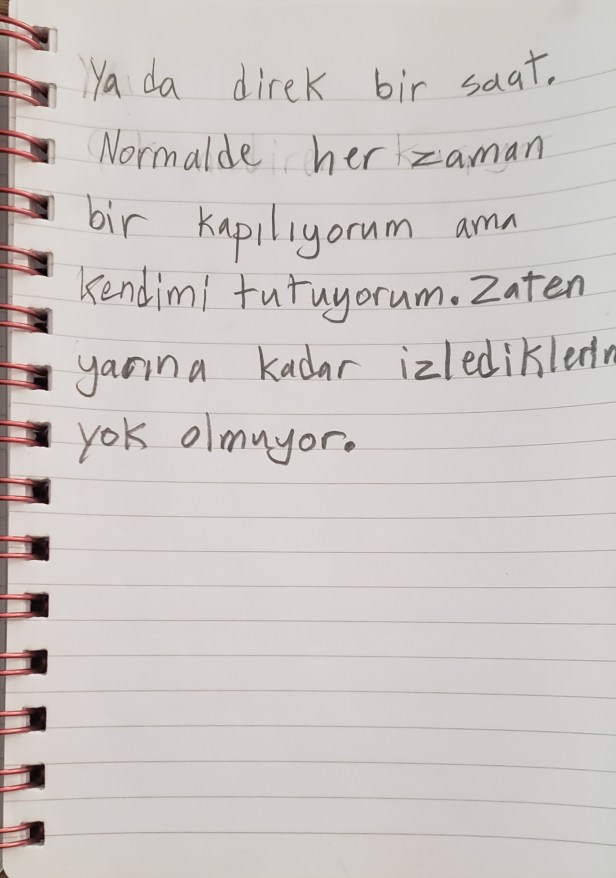 Ya da direk bir saat.
Normalde her zaman
bir kapılıyorum ama
kendimi tutuyorum. Zaten
yarına kadar izlediklerin
yok olmuyor.